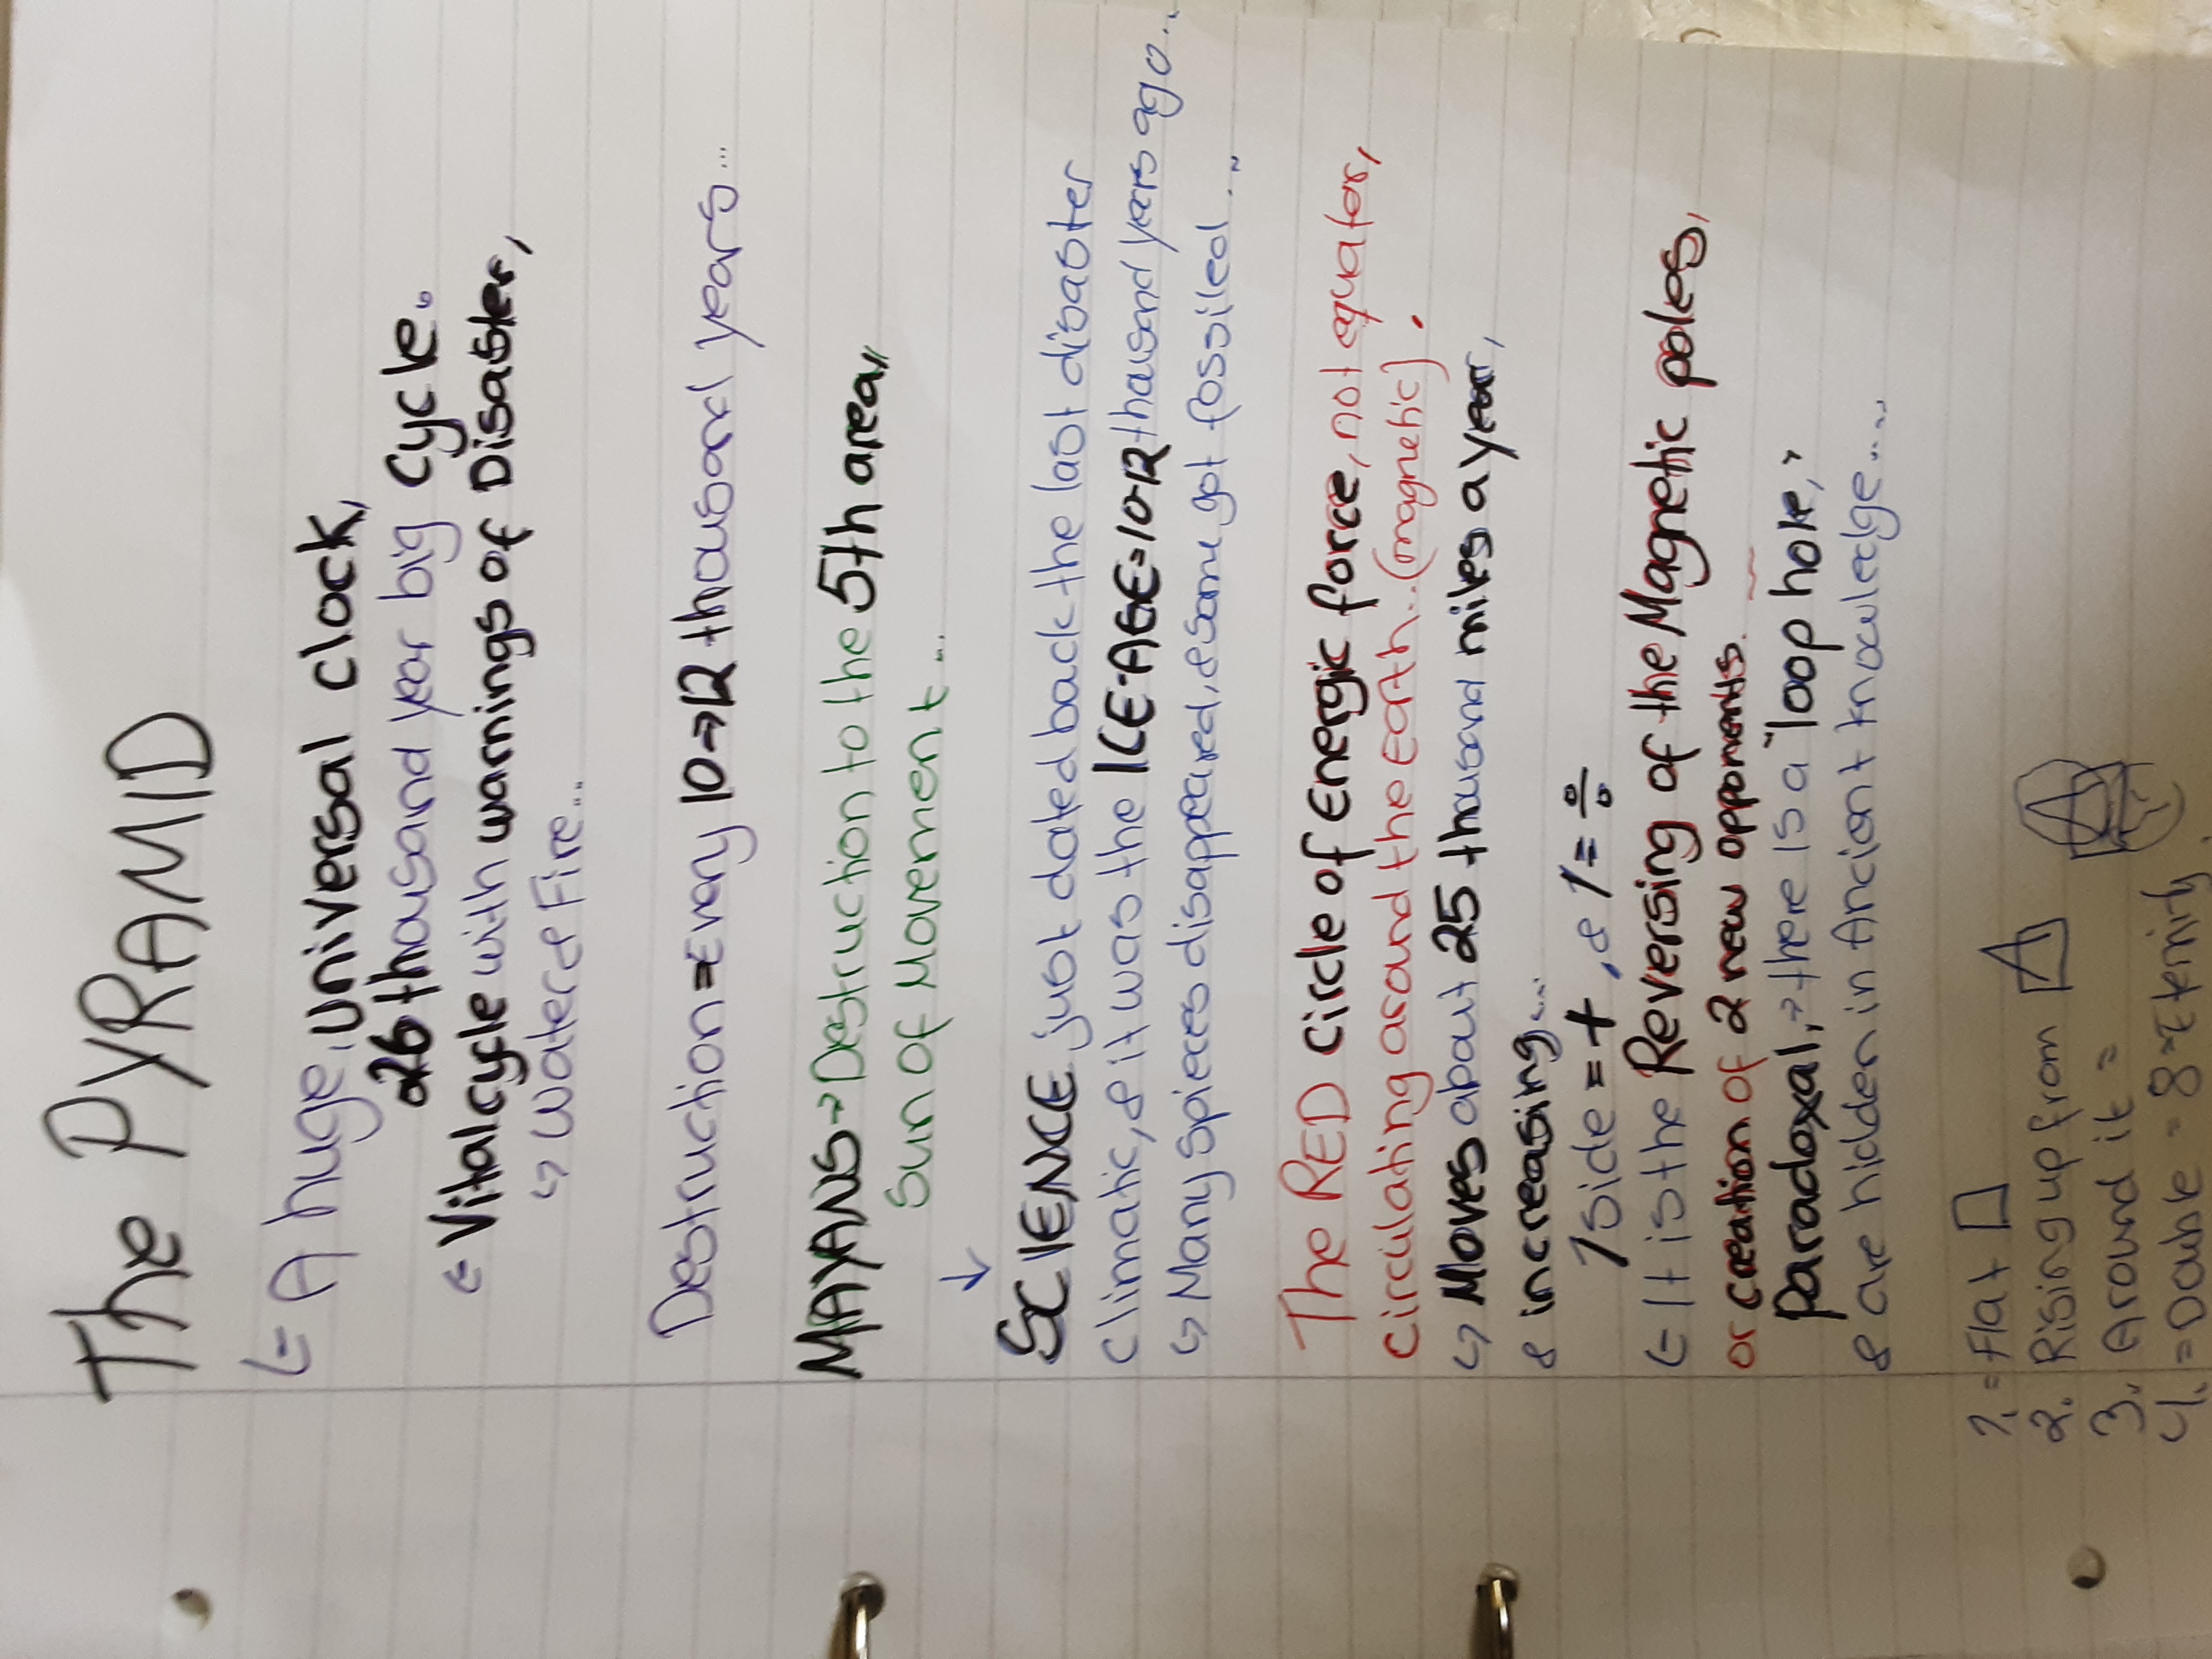 The PYRAMID
A huge, universal clock,
26 thousand year big cycle.
Vital cycle with warnings of Disaster,
↳ Water & Fire...
Destruction = Every 10→12 thousand years...
MAYANS → Destruction to the 5th area,,
Sun of Movement...
↓
SCIENCE just dated back the last disaster
climatic, & it was the ICE-AGE = 10-12 thousand years ago...
↳ Many spieces disappeared, & some got fossiled...
The RED circle of Energic force, not equator,
circulating around the Earth.. (magnetic).
↳ Moves about 25 thousand miles a year,
& increasing....
1 side = +, & 1 = ÷
It is the Reversing of the Magnetic poles,
or creation of 2 new opponents.
Paradoxal, → there is a "loop hole,"
& are hidden in Anciont knowledge....
1. = Flat □
2. Rising up from
3. Around it =
4. = Double = 8 =